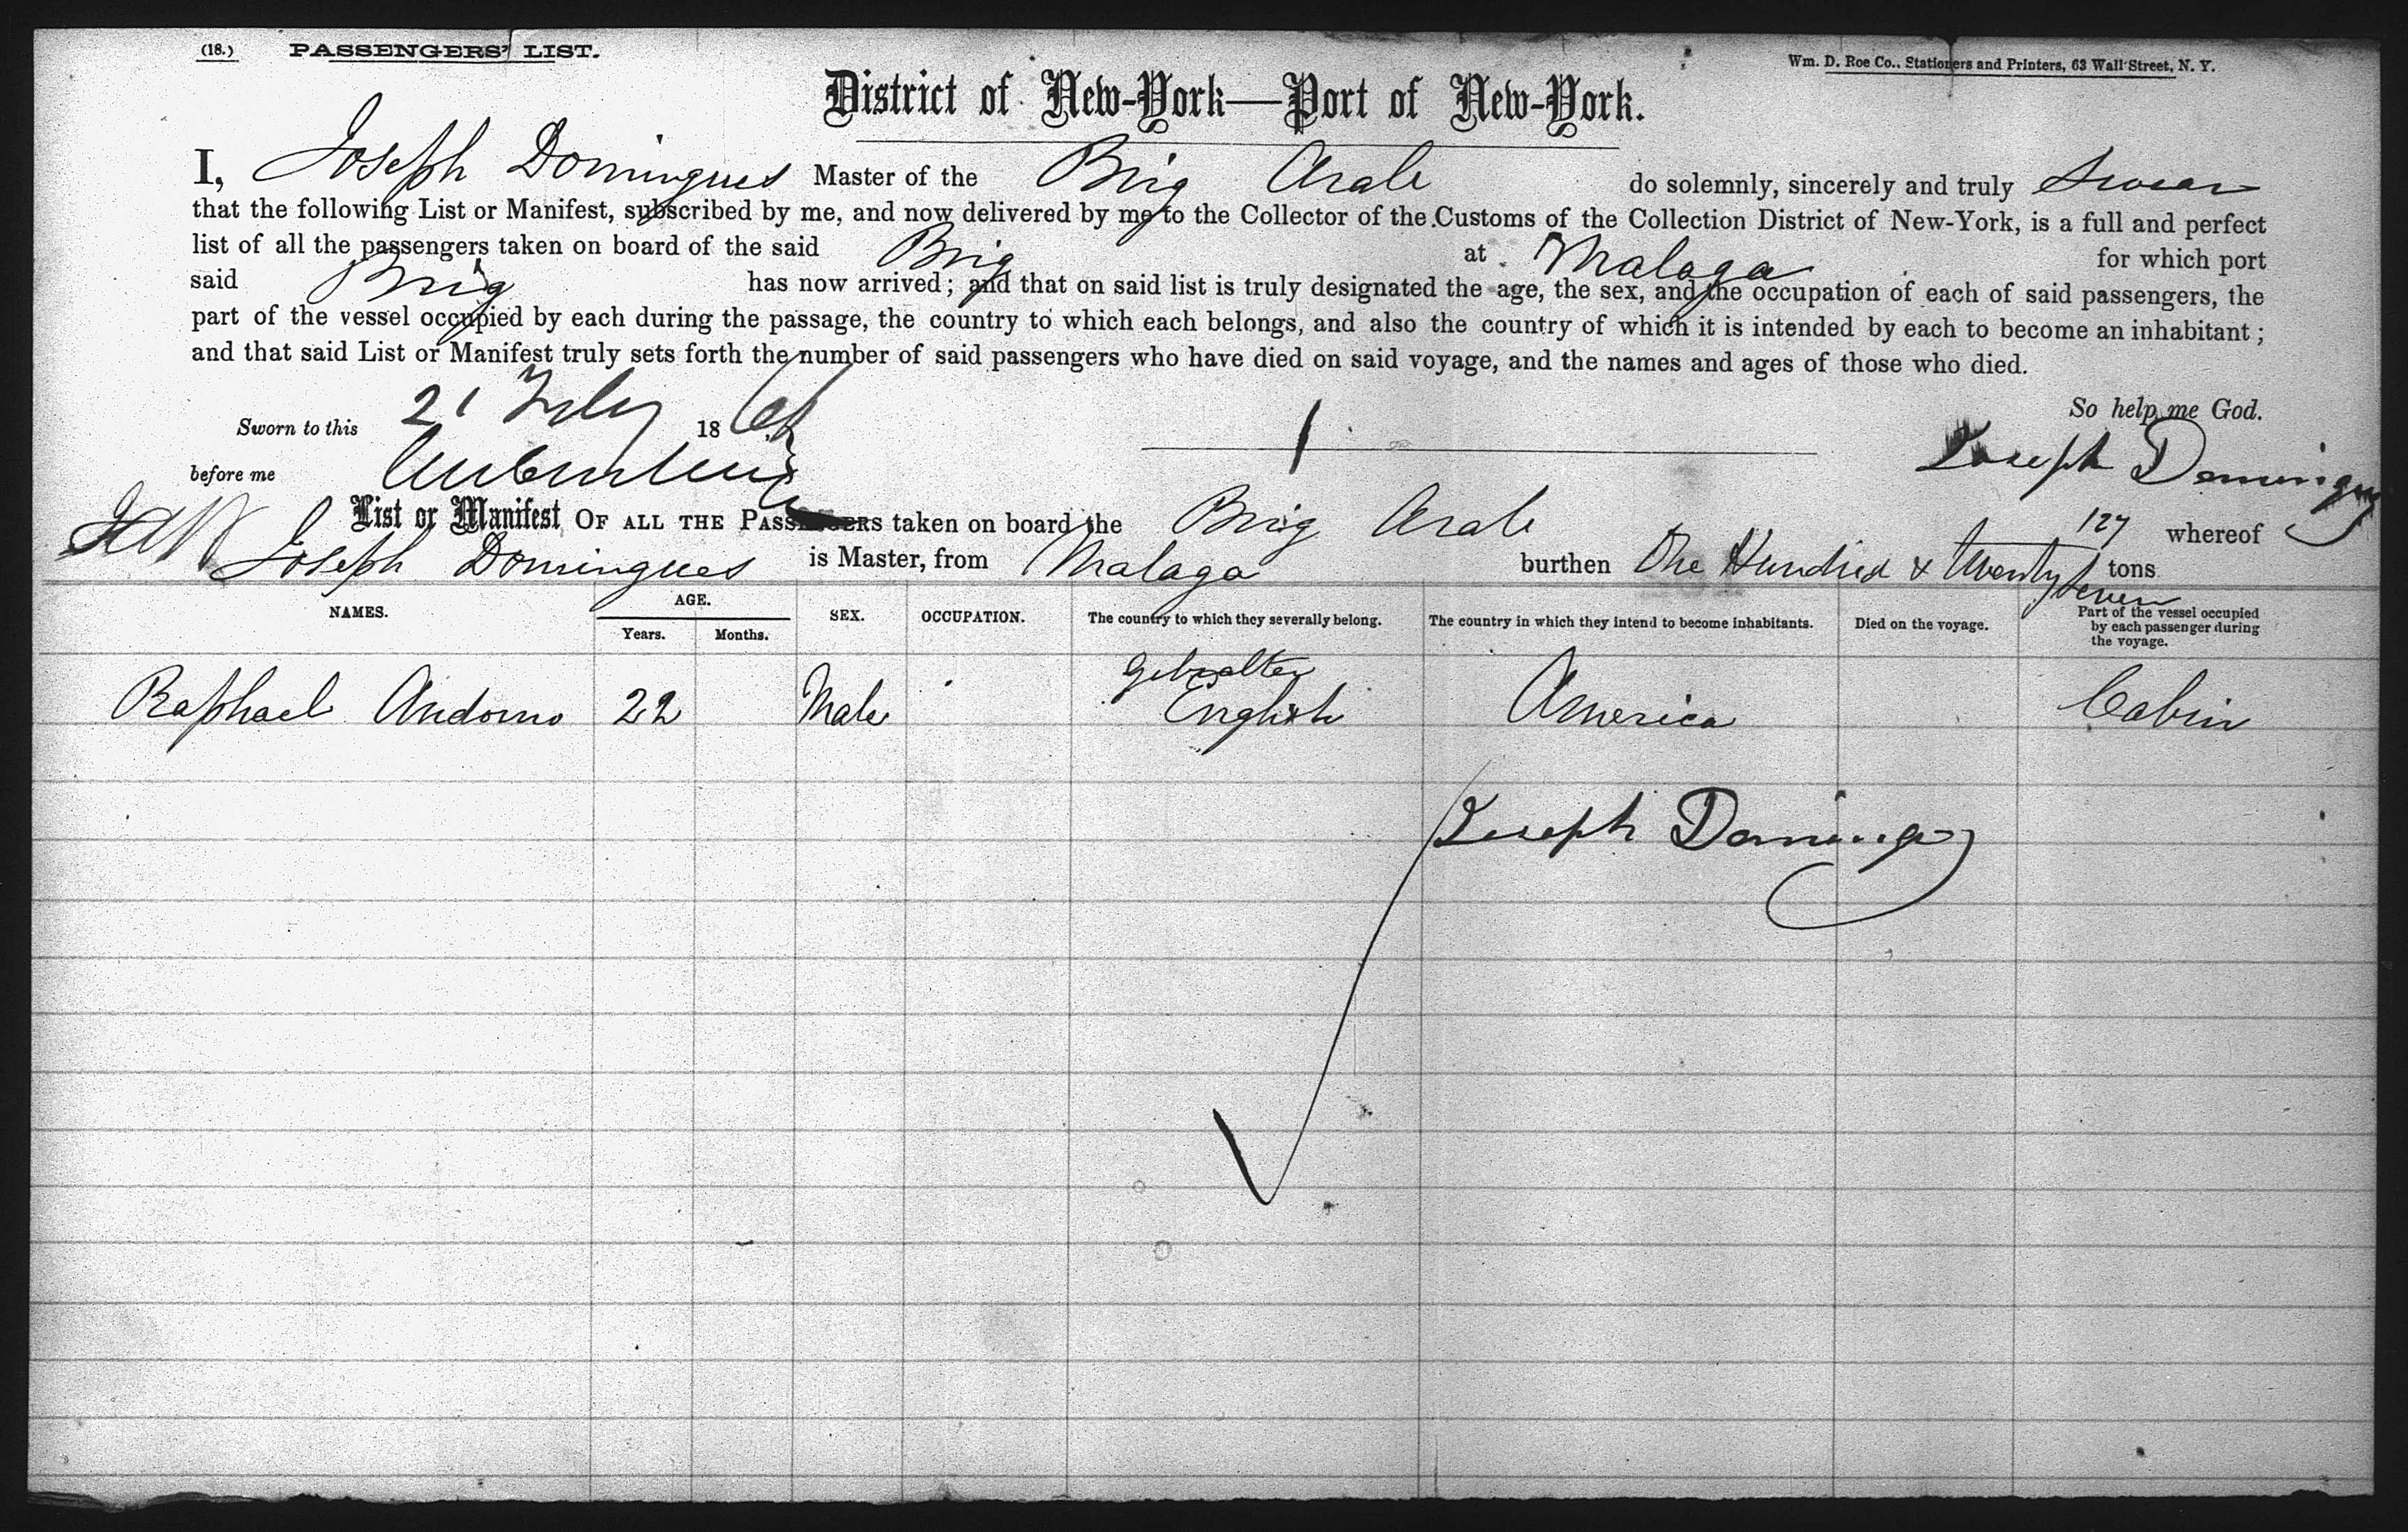 (18.) PASSENGERS' LIST.
Wm. D. Roe Co., Stationers and Printers, 63 Wall Street, N. Y.
District of New-York—Port of New-York.
I, Joseph Domingues Master of the Brig Arab do solemnly, sincerely and truly Swear
that the following List or Manifest, subscribed by me, and now delivered by me to the Collector of the Customs of the Collection District of New-York, is a full and perfect
list of all the passengers taken on board of the said Brig at Malaga for which port
said Brig has now arrived; and that on said list is truly designated the age, the sex, and the occupation of each of said passengers, the
part of the vessel occupied by each during the passage, the country to which each belongs, and also the country of which it is intended by each to become an inhabitant;
and that said List or Manifest truly sets forth the number of said passengers who have died on said voyage, and the names and ages of those who died.
So help me God.
Sworn to this 21 18
before me
Joseph Domingues
List or Manifest OF ALL THE PASSENGERS taken on board the Brig Arab 127 whereof
Joseph Domingues is Master, from Malaga burthen One Hundred & Twenty Seven tons
NAMES. AGE. Years. Months. SEX. OCCUPATION. The country to which they severally belong. The country in which they intend to become inhabitants. Died on the voyage. Part of the vessel occupied by each passenger during the voyage.
Gibralter
Raphael Andorno 22 Male English America Cabin
Joseph Domingues